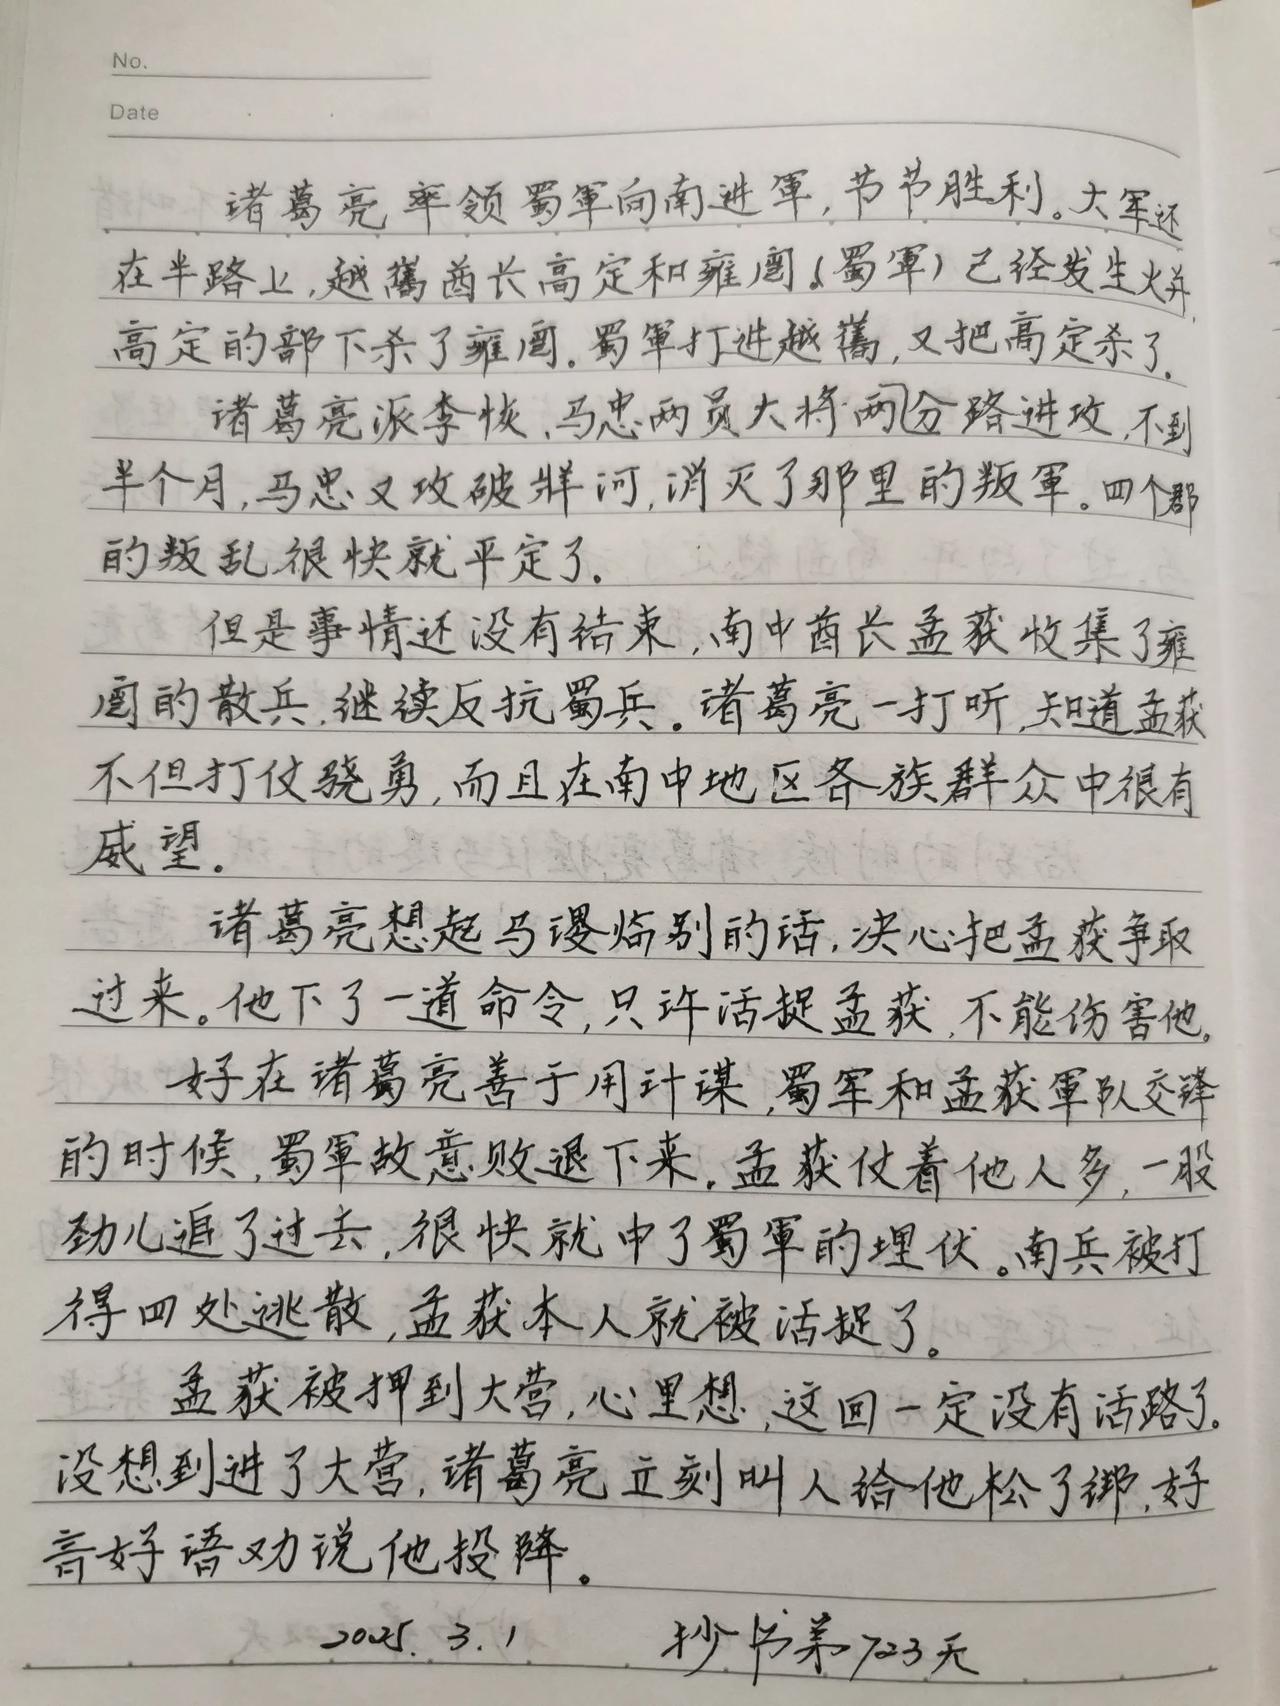 No.
Date
诸葛亮率领蜀軍向南进軍,节节胜利。大军还
在半路上,越嶲酋长高定和雍闿(蜀軍)已经发生火并,
高定的部下杀了雍闿。蜀軍打进越嶲,又把高定杀了。
诸葛亮派李恢、马忠两员大将两分路进攻,不到
半个月,马忠又攻破牂河,消灭了那里的叛軍。四个郡
的叛乱很快就平定了。
但是事情还没有结束,南中酋长孟获收集了雍
闿的散兵,继续反抗蜀兵。诸葛亮一打听,知道孟获
不但打仗骁勇,而且在南中地区各族群众中很有
威望。
诸葛亮想起马谡临别的话,决心把孟获争取
过来。他下了一道命令,只许活捉孟获,不能伤害他。
好在诸葛亮善于用计谋,蜀军和孟获軍队交锋
的时候,蜀軍故意败退下来。孟获仗着他人多,一股
劲儿追了过去,很快就中了蜀軍的埋伏。南兵被打
得四处逃散,孟获本人就被活捉了。
孟获被押到大营,心里想,这回一定没有活路了。
没想到进了大营,诸葛亮立刻叫人给他松了绑,好
言好语劝说他投降。
2025.3.1 抄书第723天